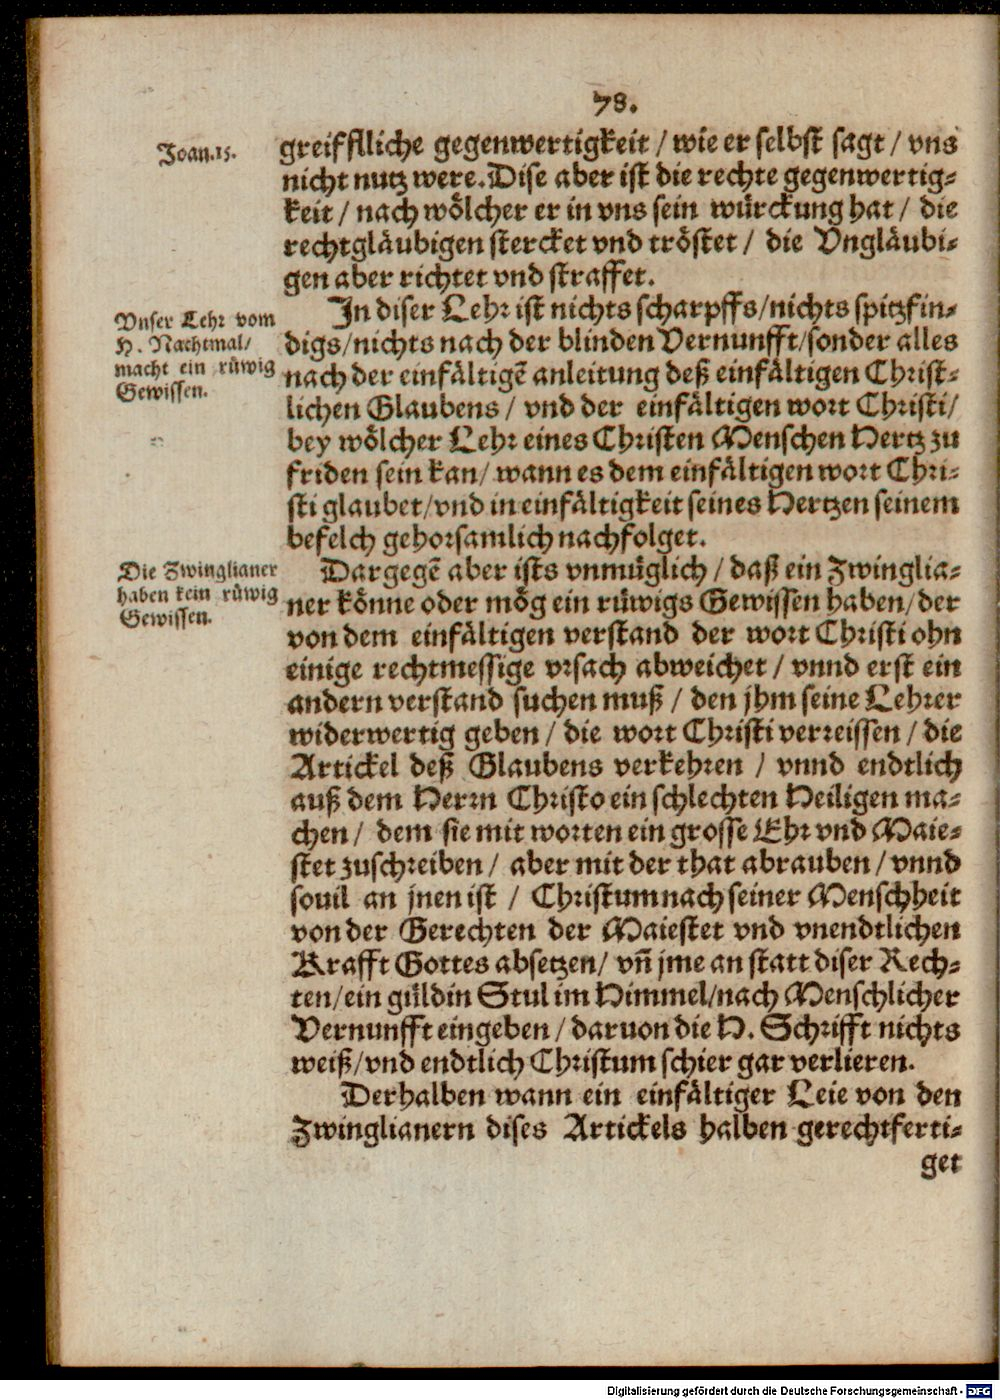 78.
Joan.15.
greifflliche gegenwertigkeit / wie er selbst sagt / vns
nicht nutz were. Dise aber ist die rechte gegenwertig-
keit / nach wölcher er in vns sein würckung hat / die
rechtgläubigen stercket vnd tröstet / die Vngläubi-
gen aber richtet vnd straffet.
Vnser Lehr vom
H. Nachtmal/
macht ein rüwig
Gewissen.
In diser Lehr ist nichts scharpffs/nichts spitzfin-
digs/nichts nach der blinden Vernunfft/sonder alles
nach der einfältigē anleitung deß einfältigen Christ-
lichen Glaubens / vnd der einfältigen wort Christi/
bey wölcher Lehr eines Christen Menschen Hertz zu
friden sein kan/ wann es dem einfältigen wort Chri-
sti glaubet/vnd in einfältigkeit seines Hertzen seinem
befelch gehorsamlich nachfolget.
Die Zwinglianer
haben kein rüwig
Gewissen.
Dargegē aber ists vnmüglich / daß ein Zwinglia-
ner könne oder mög ein rüwigs Gewissen haben/der
von dem einfältigen verstand der wort Christi ohn
einige rechtmessige vrsach abweichet / vnnd erst ein
andern verstand suchen muß / den jhm seine Lehrer
widerwertig geben / die wort Christi verreissen / die
Artickel deß Glaubens verkehren / vnnd endtlich
auß dem Herrn Christo ein schlechten Heiligen ma-
chen / dem sie mit worten ein grosse Ehr vnd Maie-
stet zuschreiben / aber mit der that abrauben / vnnd
souil an jnen ist / Christum nach seiner Menschheit
von der Gerechten der Maiestet vnd vnendtlichen
Krafft Gottes absetzen/ vñ jme an statt diser Rech-
ten/ein güldin Stul im Himmel/nach Menschlicher
Vernunfft eingeben / daruon die H. Schrifft nichts
weiß/vnd endtlich Christum schier gar verlieren.
Derhalben wann ein einfältiger Leie von den
Zwinglianern dises Artickels halben gerechtferti-
get
Digitalisierung gefördert durch die Deutsche Forschungsgemeinschaft - DFG